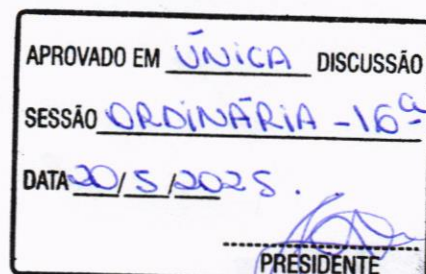 APROVADO EM ÚNICA DISCUSSÃO
SESSÃO ORDINÁRIA - 16ª
DATA 20/5/2025.
PRESIDENTE